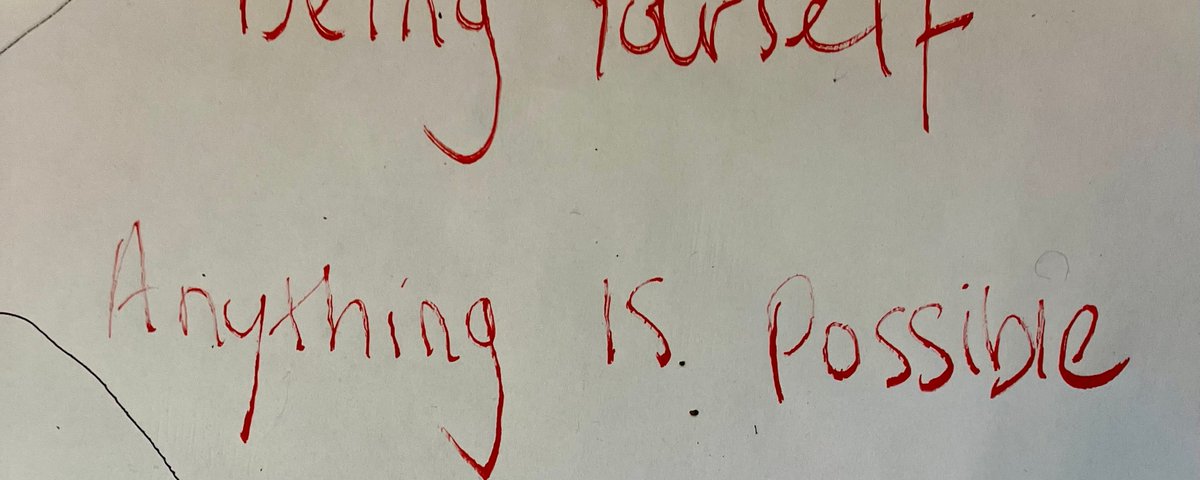 Being Yourself
Anything Is Possible